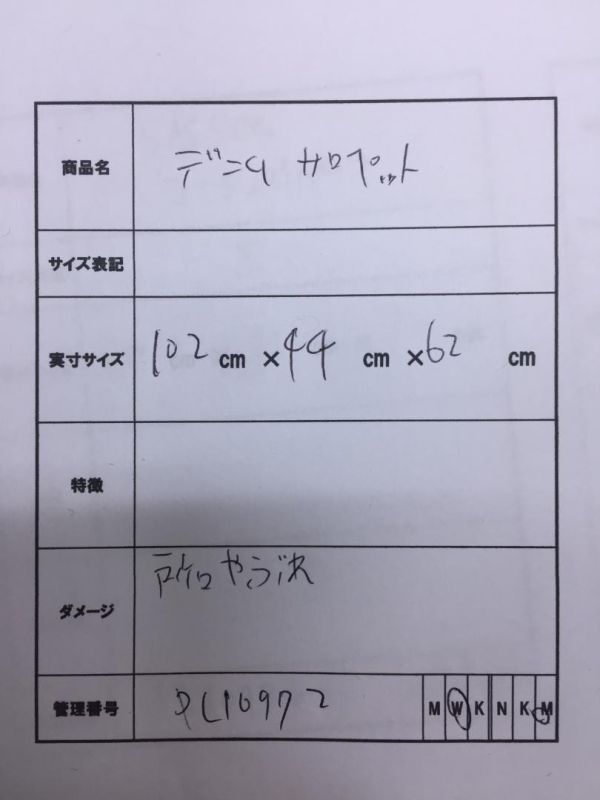 商品名 デニム サロペット
サイズ表記
実寸サイズ 102 cm ×44 cm ×62 cm
特徴
ダメージ やぶれ
管理番号 M W K N K M